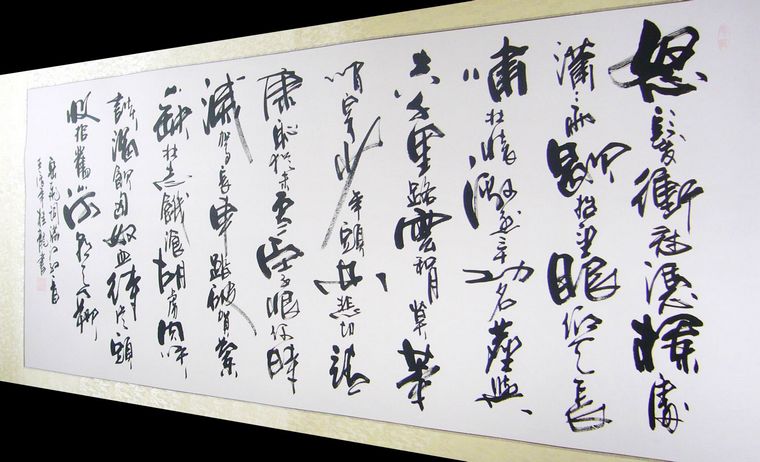 怒髮衝冠憑欄處
瀟瀟雨歇抬望眼仰天長
嘯壯懷激烈三十功名塵與
土八千里路雲和月莫等
閒白了少年頭空悲切靖
康恥猶未雪臣子恨何時
滅駕長車踏破賀蘭山
缺壯志飢餐胡虜肉笑
談渴飲匈奴血待從頭
收拾舊山河朝天闕
岳飛詞滿江紅一首
書